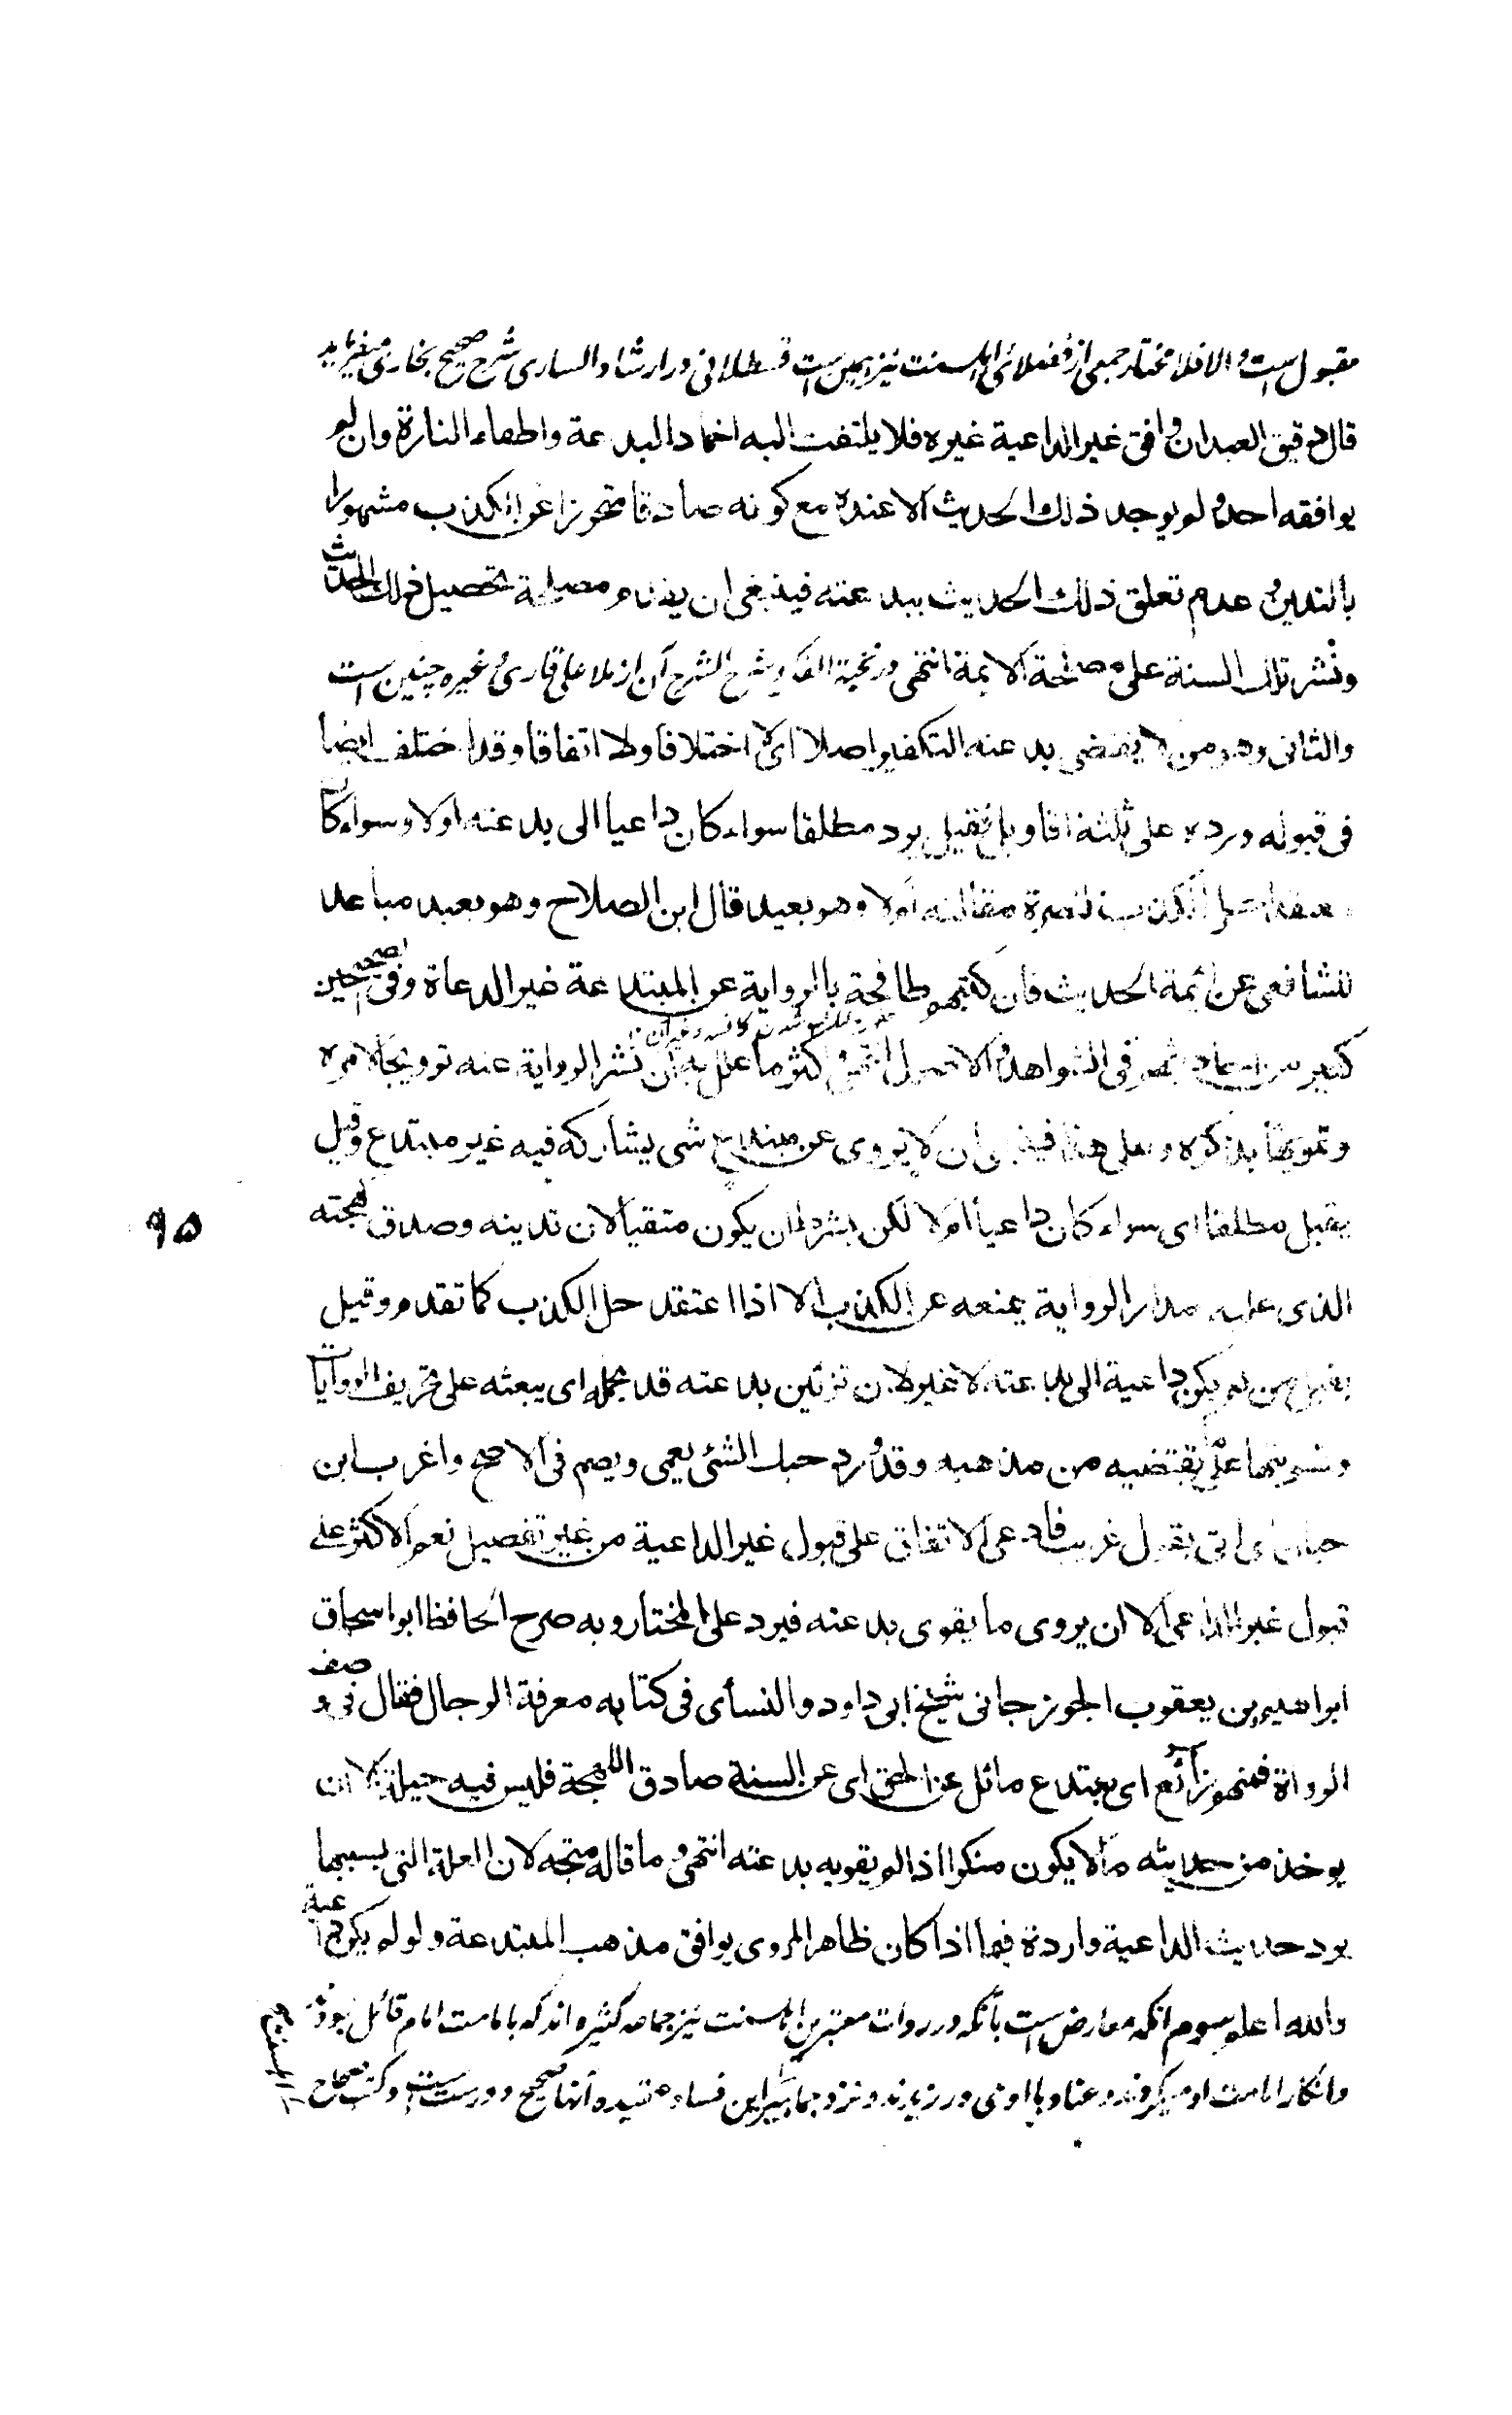 مقبول است و الا فلا مختار جمعی از فضلائی اهلسنت نیز همین است قسطلانی در ارشاد الساری شرح صحیح بخاری میفرماید
قال دقیق العبد ان وافق غیر الداعیة غیره فلا یلتفت الیه اخمادا لبدعة واطفاء النارة وان لم
یوافقه احد و لم یوجد ذلك الحدیث الا عنده مع کونه صادقا متحرزا عن الکذب مشهورا
بالتدین و عدم تعلق ذلك الحدیث ببدعته فینبغی ان یقدم مصلحة تحصیل ذلك الحدیث
ونشر تلك السنة علی مصلحة الایمة انتهی و در نخبة الفکر و شرح الشرح آن از ملا علی قاری و غیره چنین است
والثانی وهو من لا یقتضی بدعته التکفیر اصلا ای لا اختلافا ولا اتفاقا وقد اختلف ایضا
فی قبوله ورده علی ثلثة اقاویل فقیل یرد مطلقا سواء کان داعیا الی بدعته اولا وسواء کان
الکذب نصرة مقالته اولا وهو بعید قال ابن الصلاح وهو بعید مباعد
للشافعی عن ائمة الحدیث فان کتبهم طافحة بالروایة عن المبتدعة غیر الدعاة وفی الصحیحین
کثیر من احادیثهم فی الشواهد و الاصول انتهی و اکثر ما علل به ان نشر الروایة عنه ترویجا لامره
وتنویها بذکره وعلی هذا فینبغی ان لا یروی عن مبتدع شی یشارکه فیه غیر مبتدع وقیل
یقبل مطلقا ای سواء کان داعیا اولا لکن بشرط ان یکون متقیا لان تدینه وصدق لهجته
الذی علیه مدار الروایة یمنعه عن الکذب الا اذا اعتقد حل الکذب کما تقدم وقیل
یقبل من لم یکن داعیة الی بدعته لا غیر لان تزئین بدعته قد یحمله ای یبعثه علی تحریف الروایات
وتسویتها علی ما یقتضیه من مذهبه وقد ورد حبك الشئی یعمی ویصم فی الاصح واغرب ابن
حبان ای اتی بقول غریب فادعی الاتفاق علی قبول غیر الداعیة من غیر تفصیل نعم الاکثر علی
قبول غیر الداعی الا ان یروی ما یقوی بدعته فیرد علی المختار وبه صرح الحافظ ابو اسحاق
ابراهیم بن یعقوب الجوزجانی شیخ ابی داود والنسأی فی کتابه معرفة الرجال فقال فی وصف
الرواة فمنهم زائغ ای مبتدع مائل عن الحق ای عن السنة صادق اللهجة فلیس فیه حیلة الا ان
یوخذ من حدیثه ما لا یکون منکرا اذا لم یقو به بدعته انتهی و ما قاله متجه لان العلة التی بسببها
یرد حدیث الداعیة واردة فیما اذا کان ظاهر المروی یوافق مذهب المبتدعة ولو لم یکن داعیة
والله اعلم سوم انکه معارض است بآنکه در روات معتبرین اهلسنت نیز جماعه کثیره اند که بامامت امام قائل نبودند
وانکار امامت او میکردند و عناد با او می ورزیدند و نزد جماهیر این فساد عقیده آنها صحیح و درست است و کتب صحاح
اهلسنت
۹۵